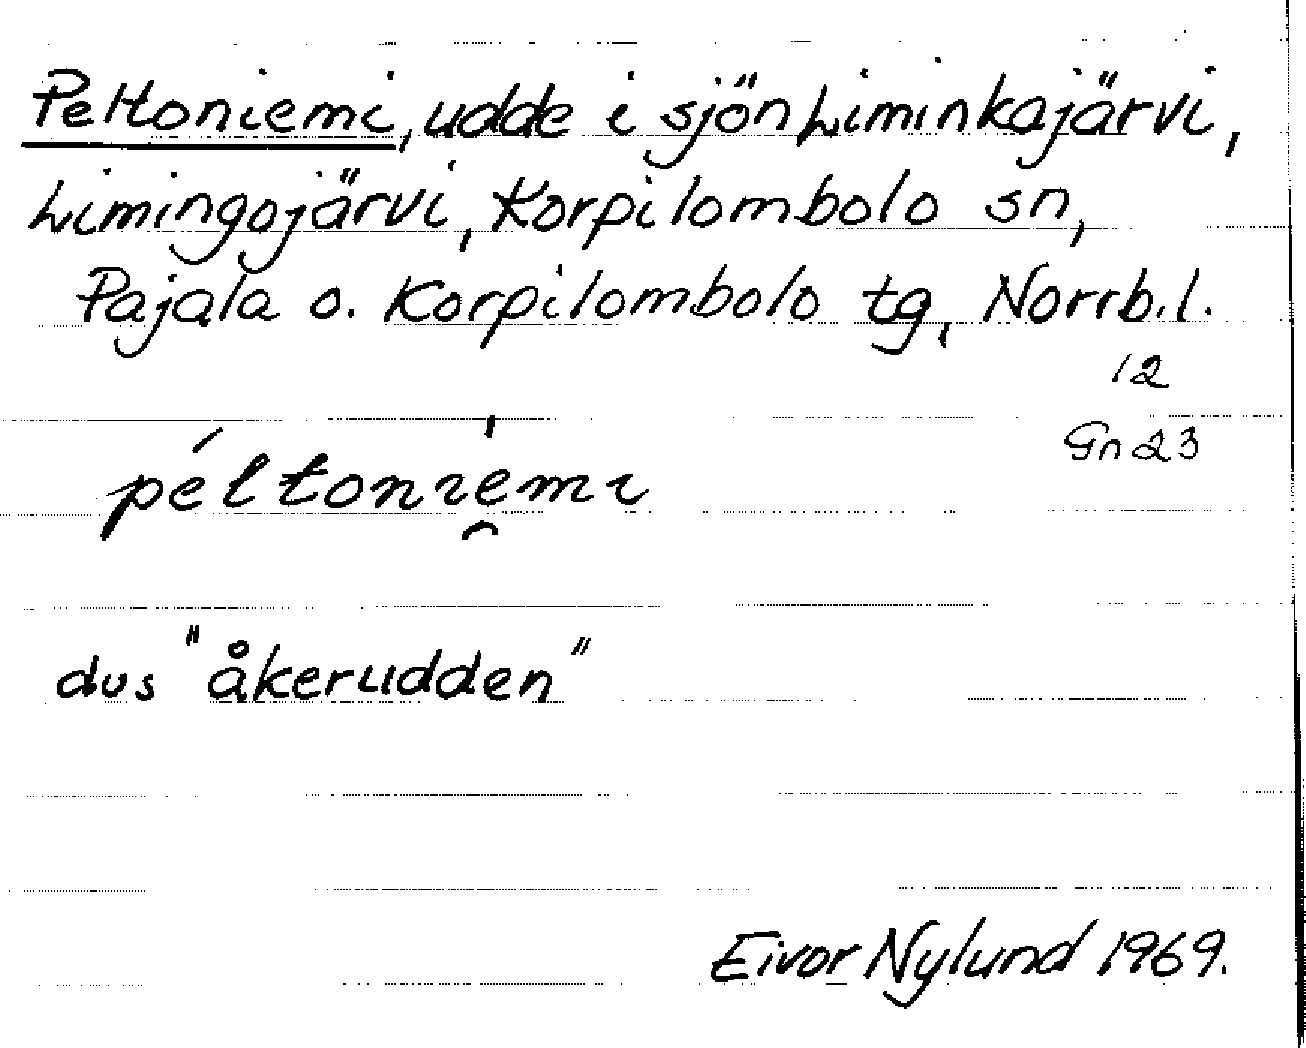 Peltoniemi, udde i sjön Liminkajärvi,
Limingojärvi, Korpilombolo sn,
Pajala o. Korpilombolo tg, Norrb.l.
12
Gn 23
péltonıe̯mı
dvs "åkerudden"
Eivor Nylund 1969.